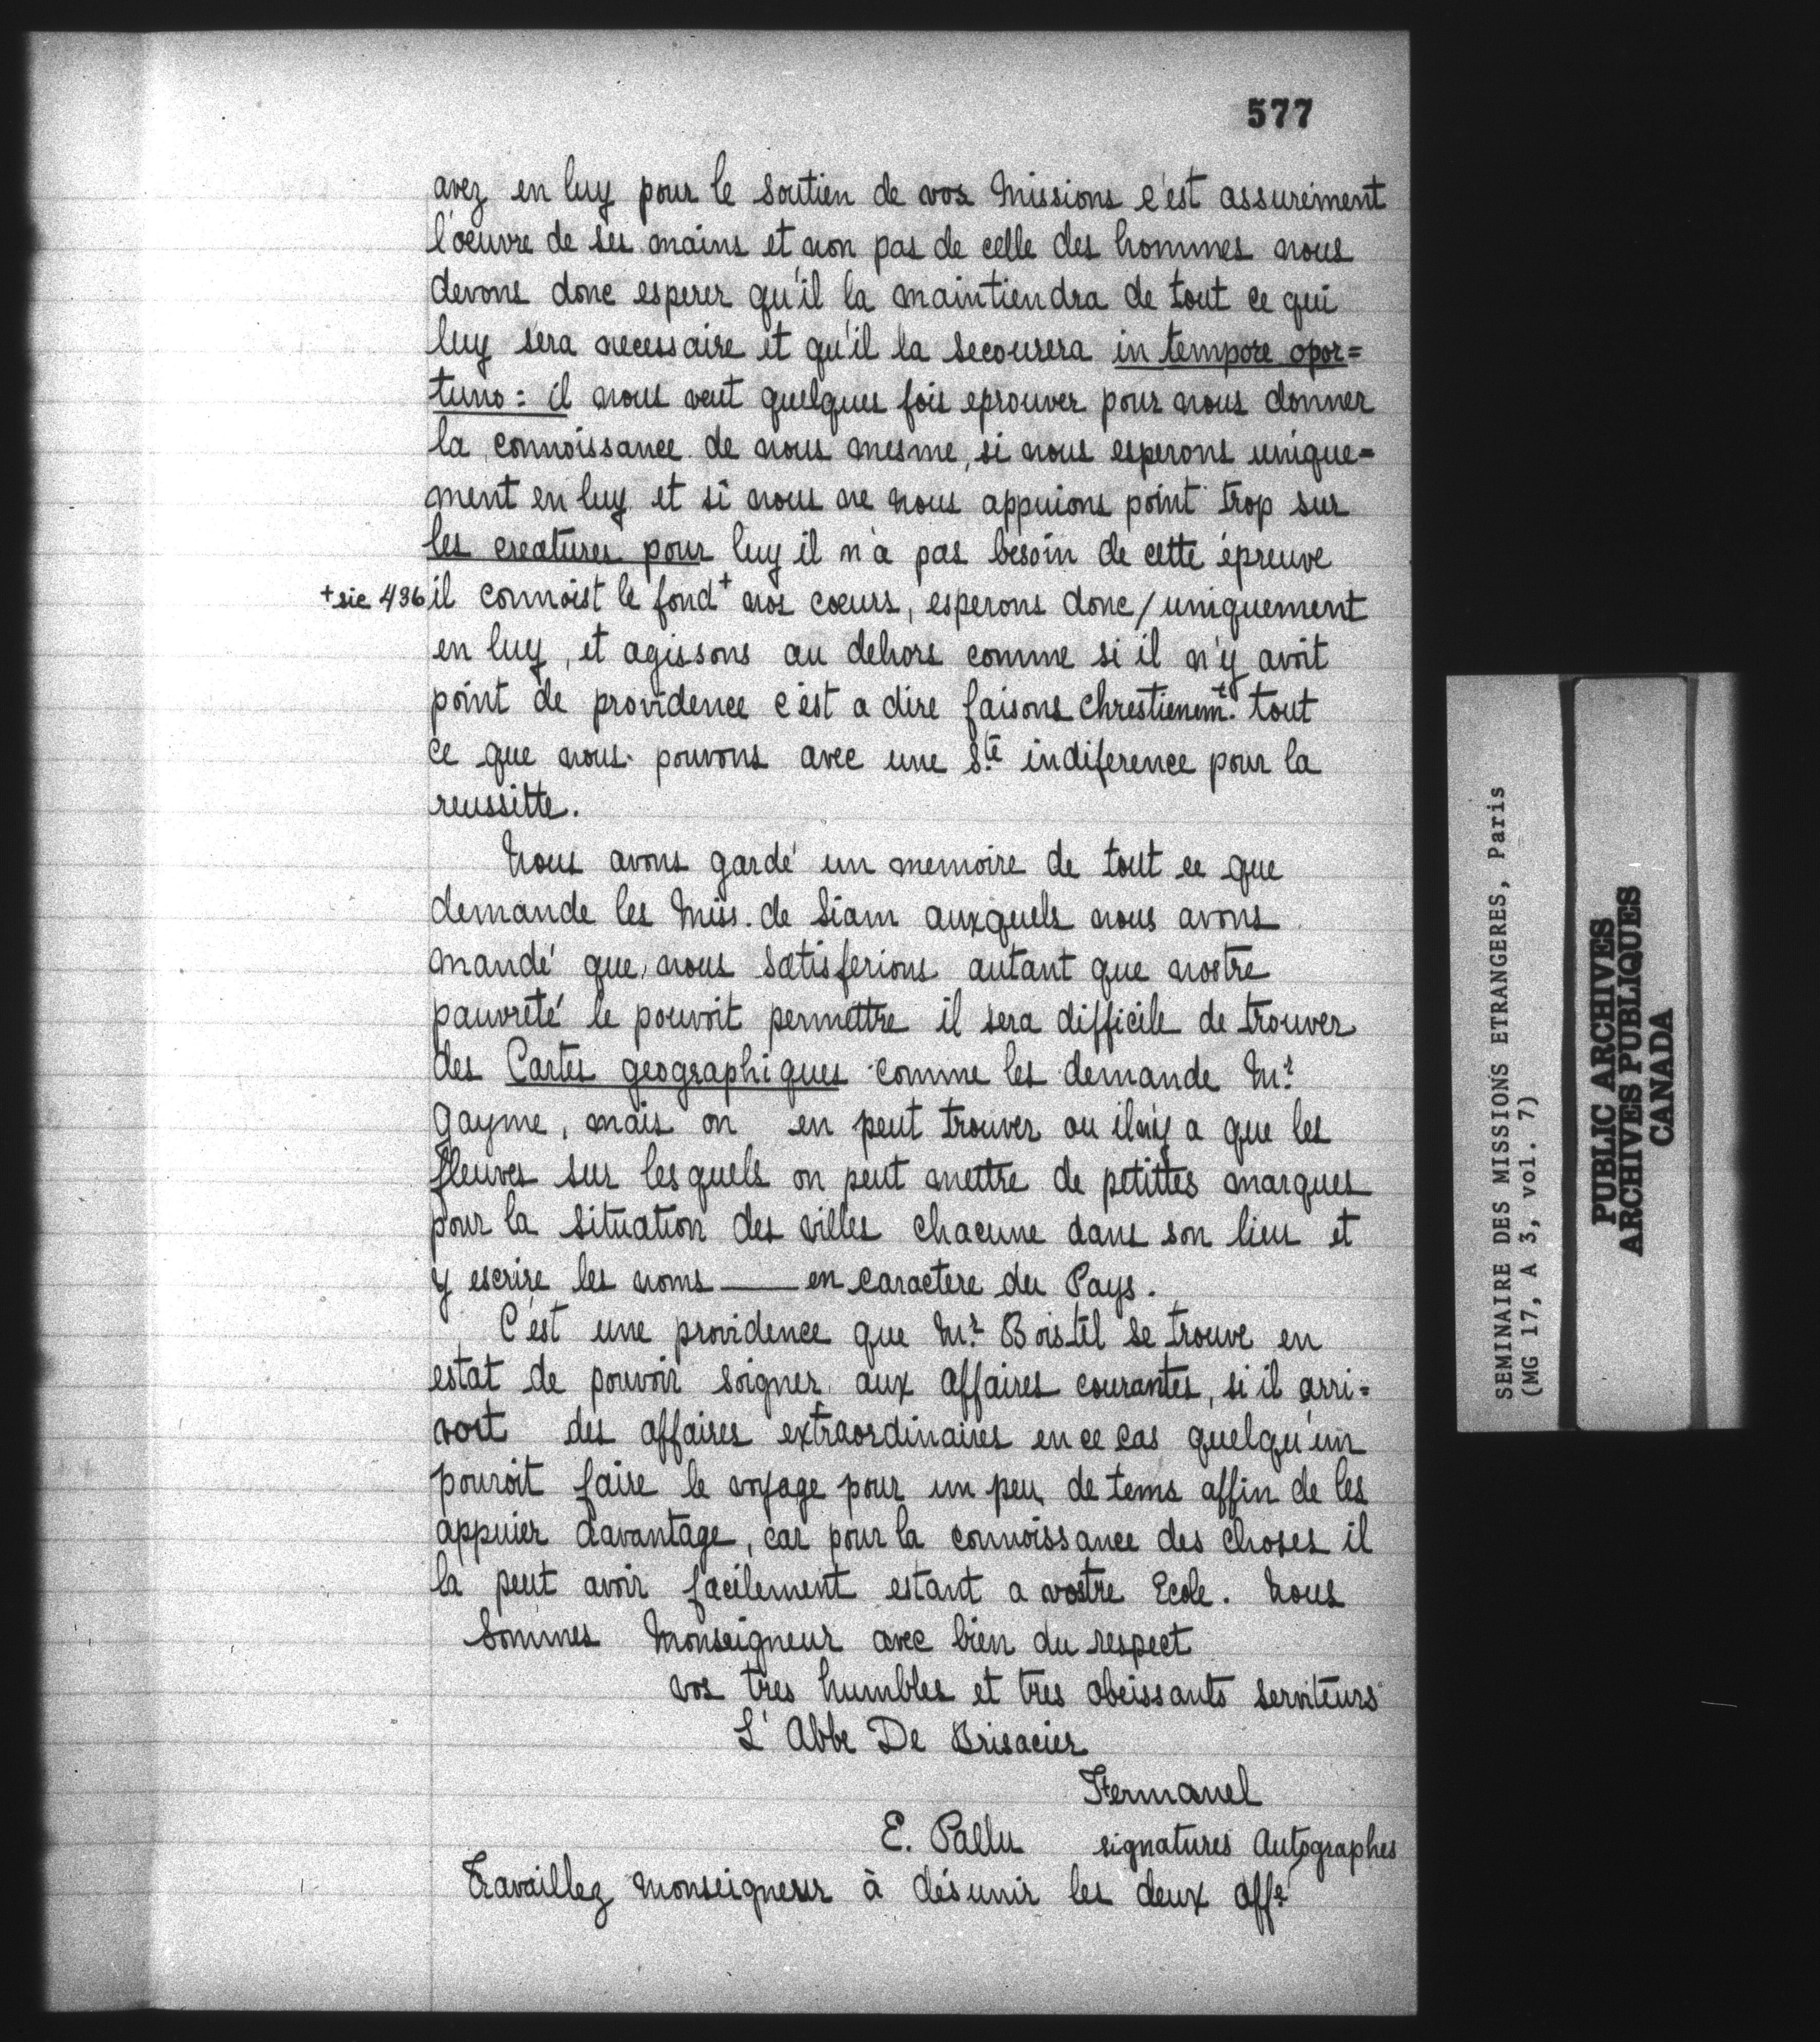 577
avez en luy pour le soutien de vos Missions c'est assurément
l'oeuvre de ses mains et non pas de celle des hommes nous
devons donc esperer qu'il la maintiendra de tout ce qui
luy sera necessaire et qu'il la secourera in tempore opor=
tuno: il nous veut quelques fois eprouver pour nous donner
la connoissance de nous mesme, si nous esperons unique=
ment en luy et si nous ne nous appuions point trop sur
les creatures pour luy il n'a pas besoin de cette épreuve
+ sic 436 il connoist le fond + nos coeurs, esperons donc / uniquement
en luy, et agissons au dehors comme si il n'y avoit
point de providence c'est a dire faisons chrestienemt. tout
ce que nous pouvons avec une Ste indiference pour la
reussitte.
Nous avons gardé un memoire de tout ce que
demande les Miss. de Siam auxquels nous avons
mandé que nous satisferions autant que nostre
pauvreté le pouvoit permettre il sera difficile de trouver
des Cartes geographiques comme les demande Mr.
Gayme, mais on en peut trouver ou il n'y a que les
fleuves sur lesquels on peut mettre de petittes marques
pour la situation des villes chacune dans son lieu et
y escrire les noms — en caractere du Pays.
C'est une providence que Mr. Boistil se trouve en
estat de pouvoir soigner aux affaires courantes, si il arri=
voit des affaires extraordinaires en ce cas quelqu'un
pouroit faire le voyage pour un peu de tems affin de les
appuier davantage, car pour la connoissance des choses il
la peut avoir facilement estant a vostre Ecole. Nous
Sommes Monseigneur avec bien du respect
vos tres humbles et tres obeissants serviteurs
L'Abbe De Brisacier
Fermanel
E. Pallu signatures Autographes
Travaillez Monseigneur à désunir les deux affe
SEMINAIRE DES MISSIONS ETRANGERES, Paris
(MG 17, A 3, vol. 7)
PUBLIC ARCHIVES
ARCHIVES PUBLIQUES
CANADA